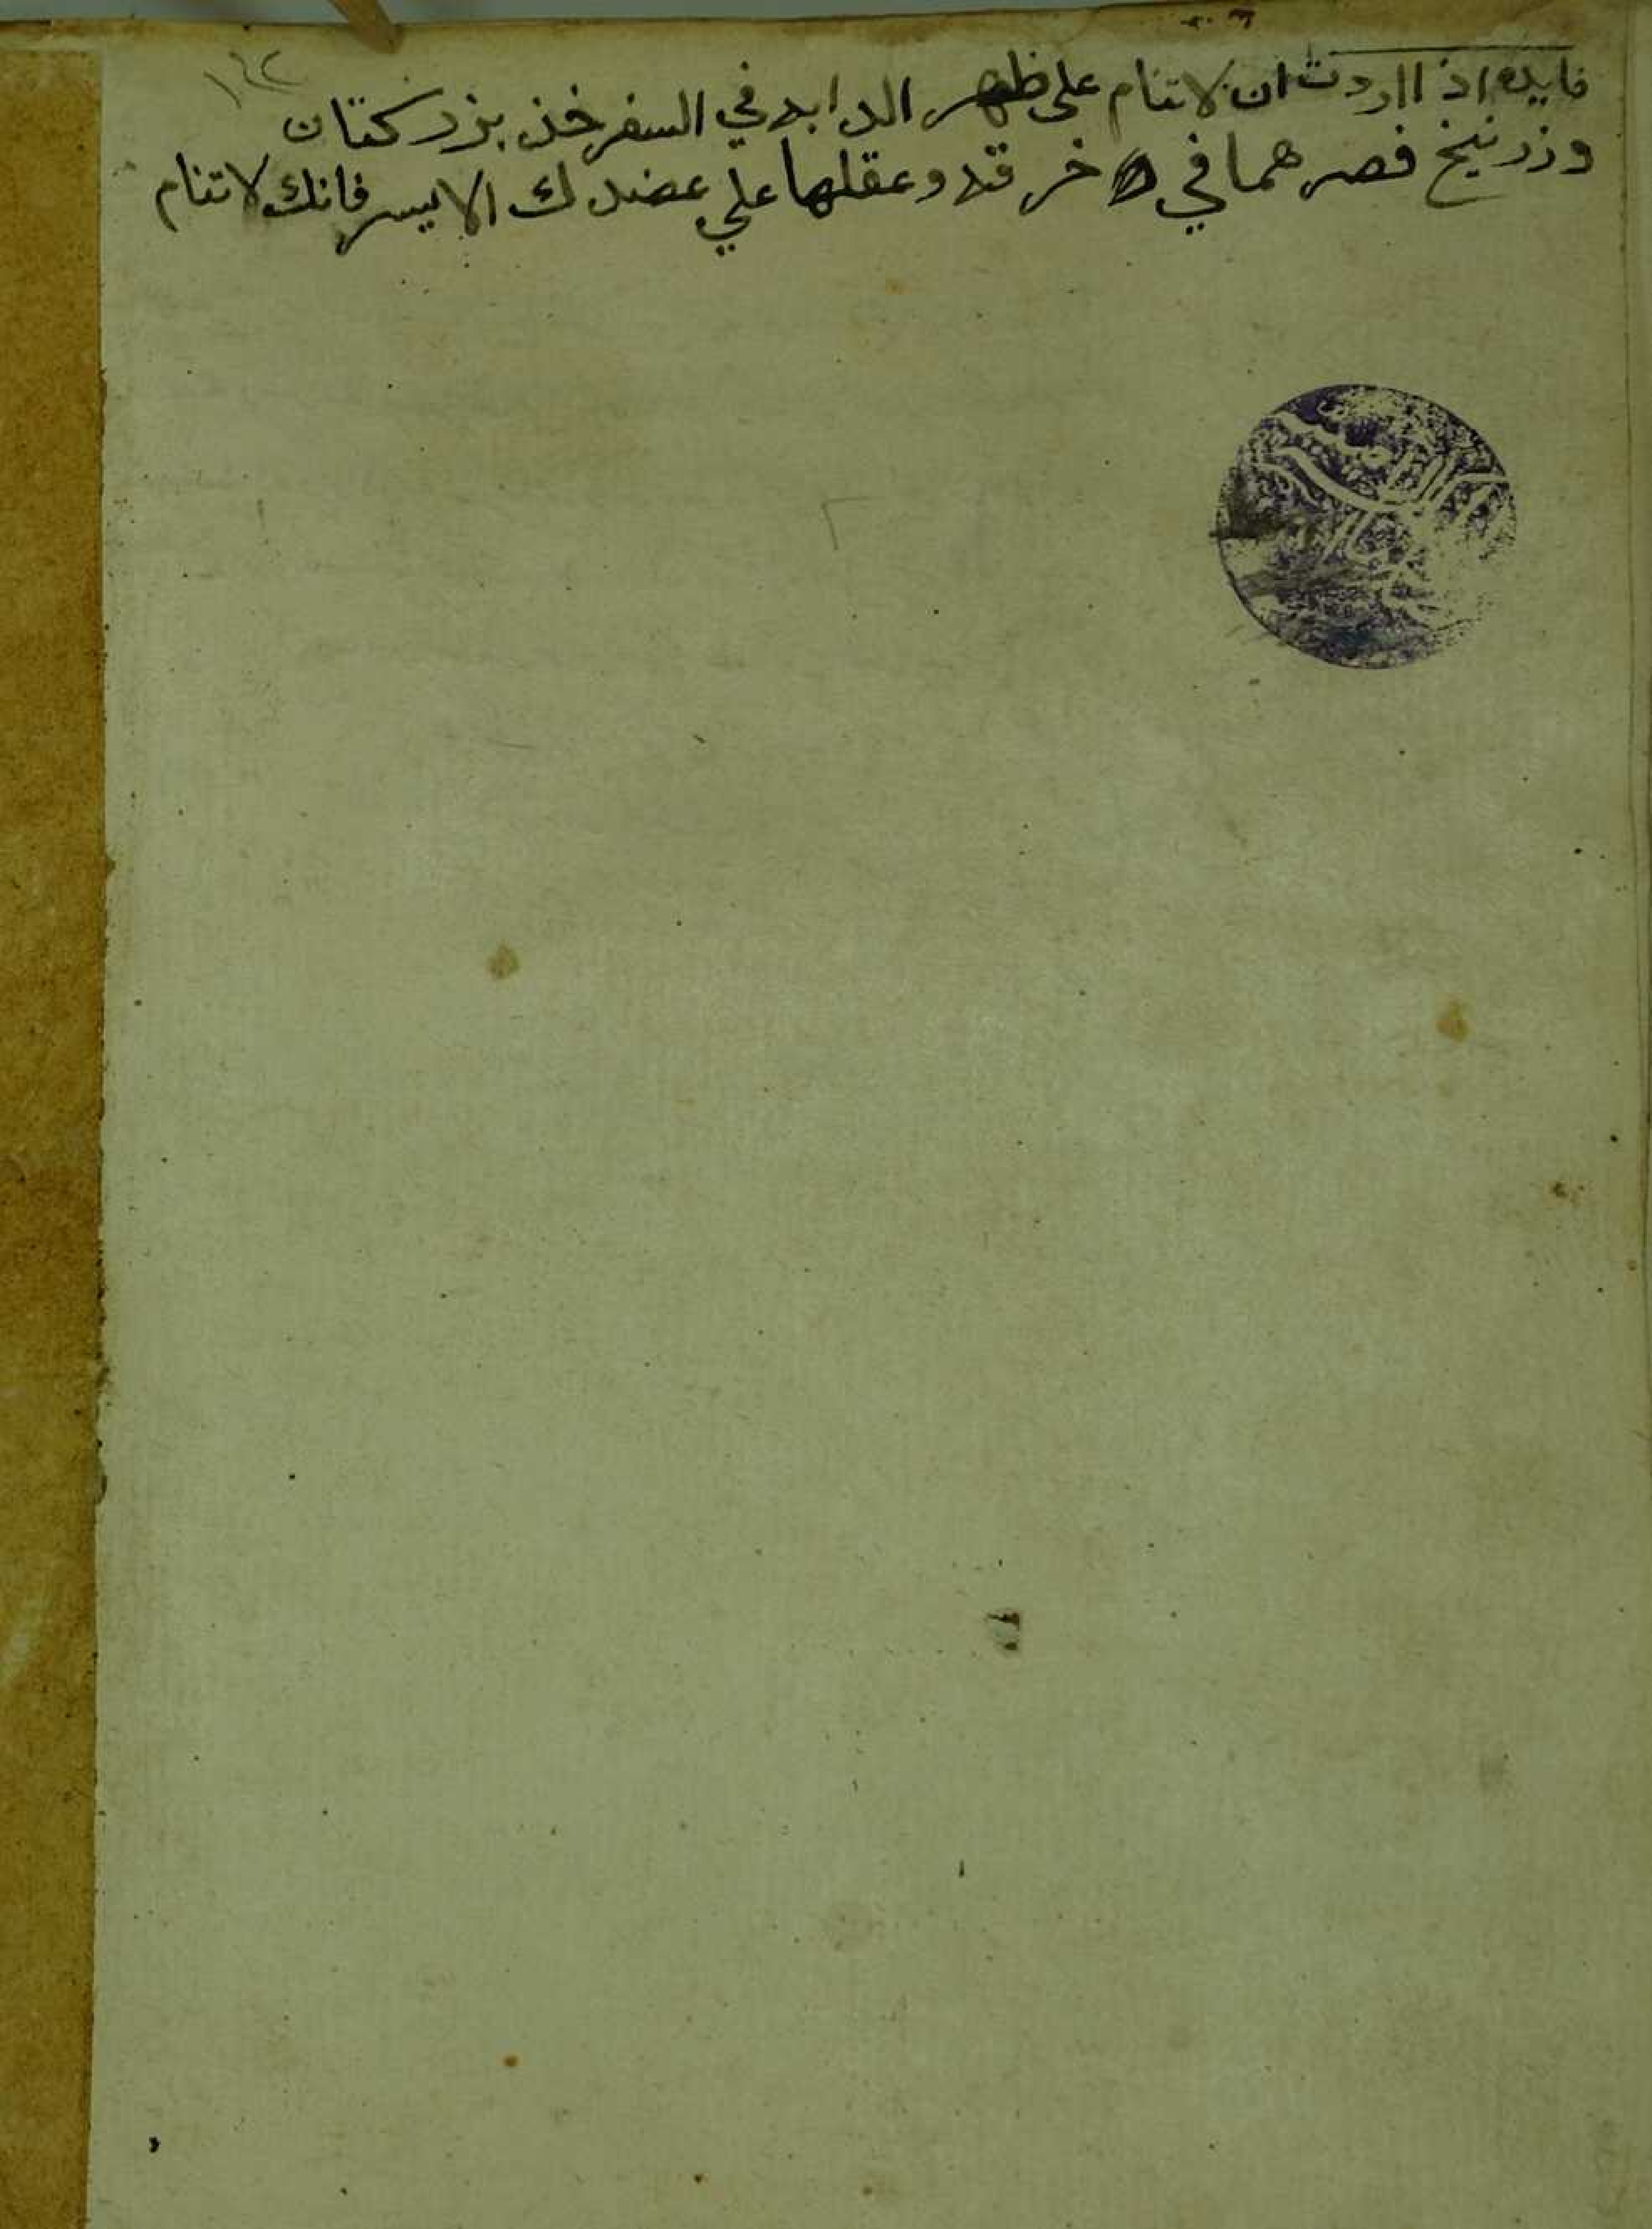 فايده اذا اردت ان لا تنام على ظهر الدابه في السفر خذ بزر كتان
وزرنيخ فصرهما في خرقه وعقلها علي عضدك الايسر فانك لا تنام
١٤٢